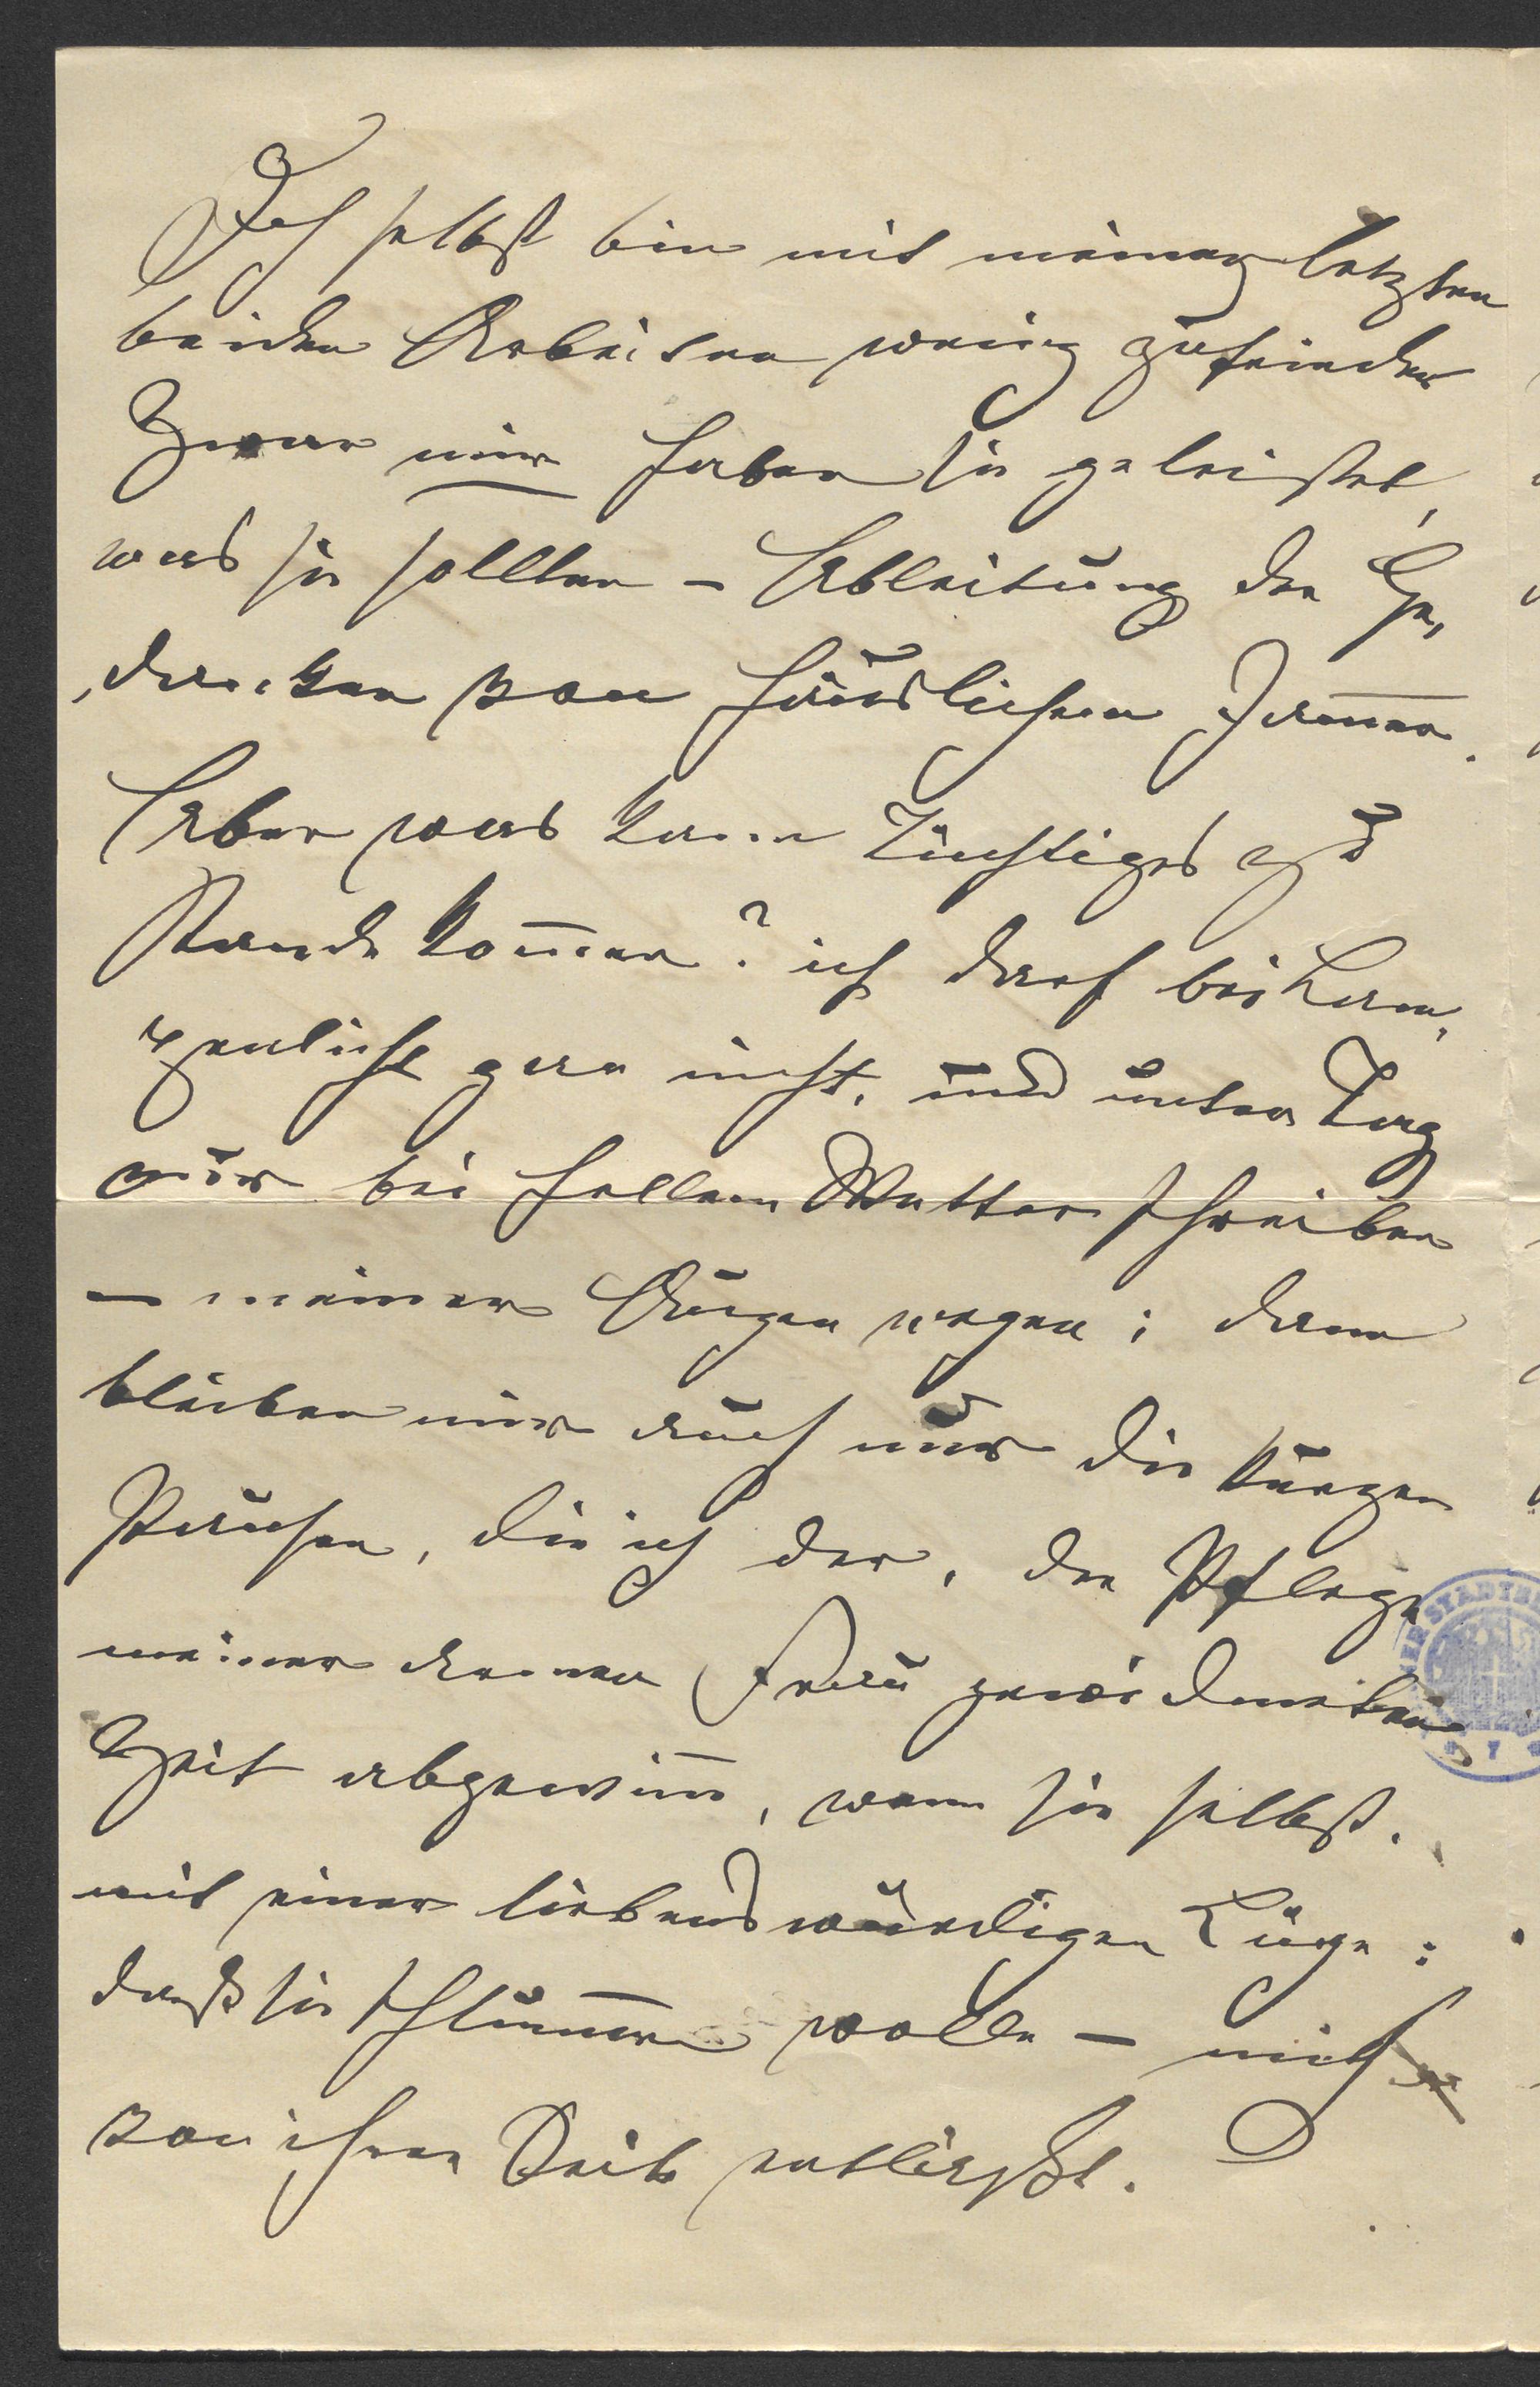 Ich selbst bin mit meinen letzten
beiden Arbeiten wenig zufrieden
Zwar mir haben sie geleistet,
was sie sollten – Ableitung der Ge-
danken von häuslichem Jam̄er.
Aber was kann Tüchtiges zu
Stande kom̄en? ich darf bei Lam-
penlicht gar nicht, und unter Tag
nur bei hellem Wetter schreiben
– meiner Augen wegen; dann
bleiben mir auch nur die kurzen
Pausen, die ich der, der Pflege
meiner armen Frau gewidmeten
Zeit abgewin̄e, wenn sie selbst.
mit einer liebenswürdigen Lüge:
daß sie schlum̄ern wolle – mich
von ihrer Seite entläßt.